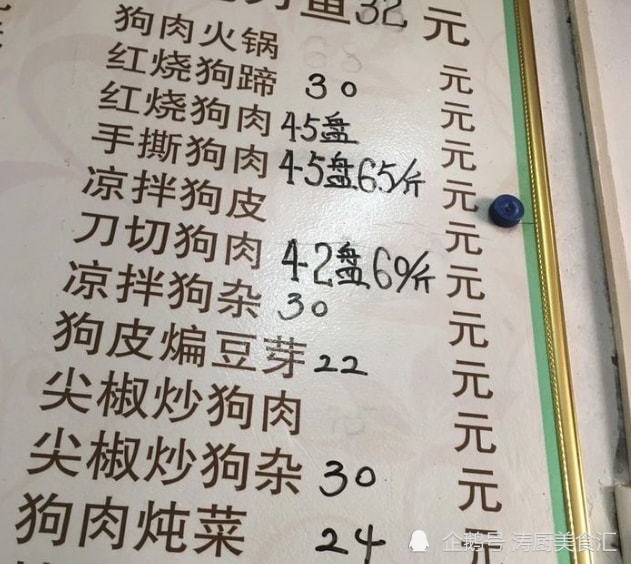 鱼32元
狗肉火锅 元
红烧狗蹄 30 元
红烧狗肉 45盘 元
手撕狗肉 45盘65/斤 元
凉拌狗皮 元
刀切狗肉 42盘60/斤 元
凉拌狗杂 30 元
狗皮煸豆芽 22 元
尖椒炒狗肉 元
尖椒炒狗杂 30 元
狗肉炖菜 24 元
企鹅号 涛厨美食汇